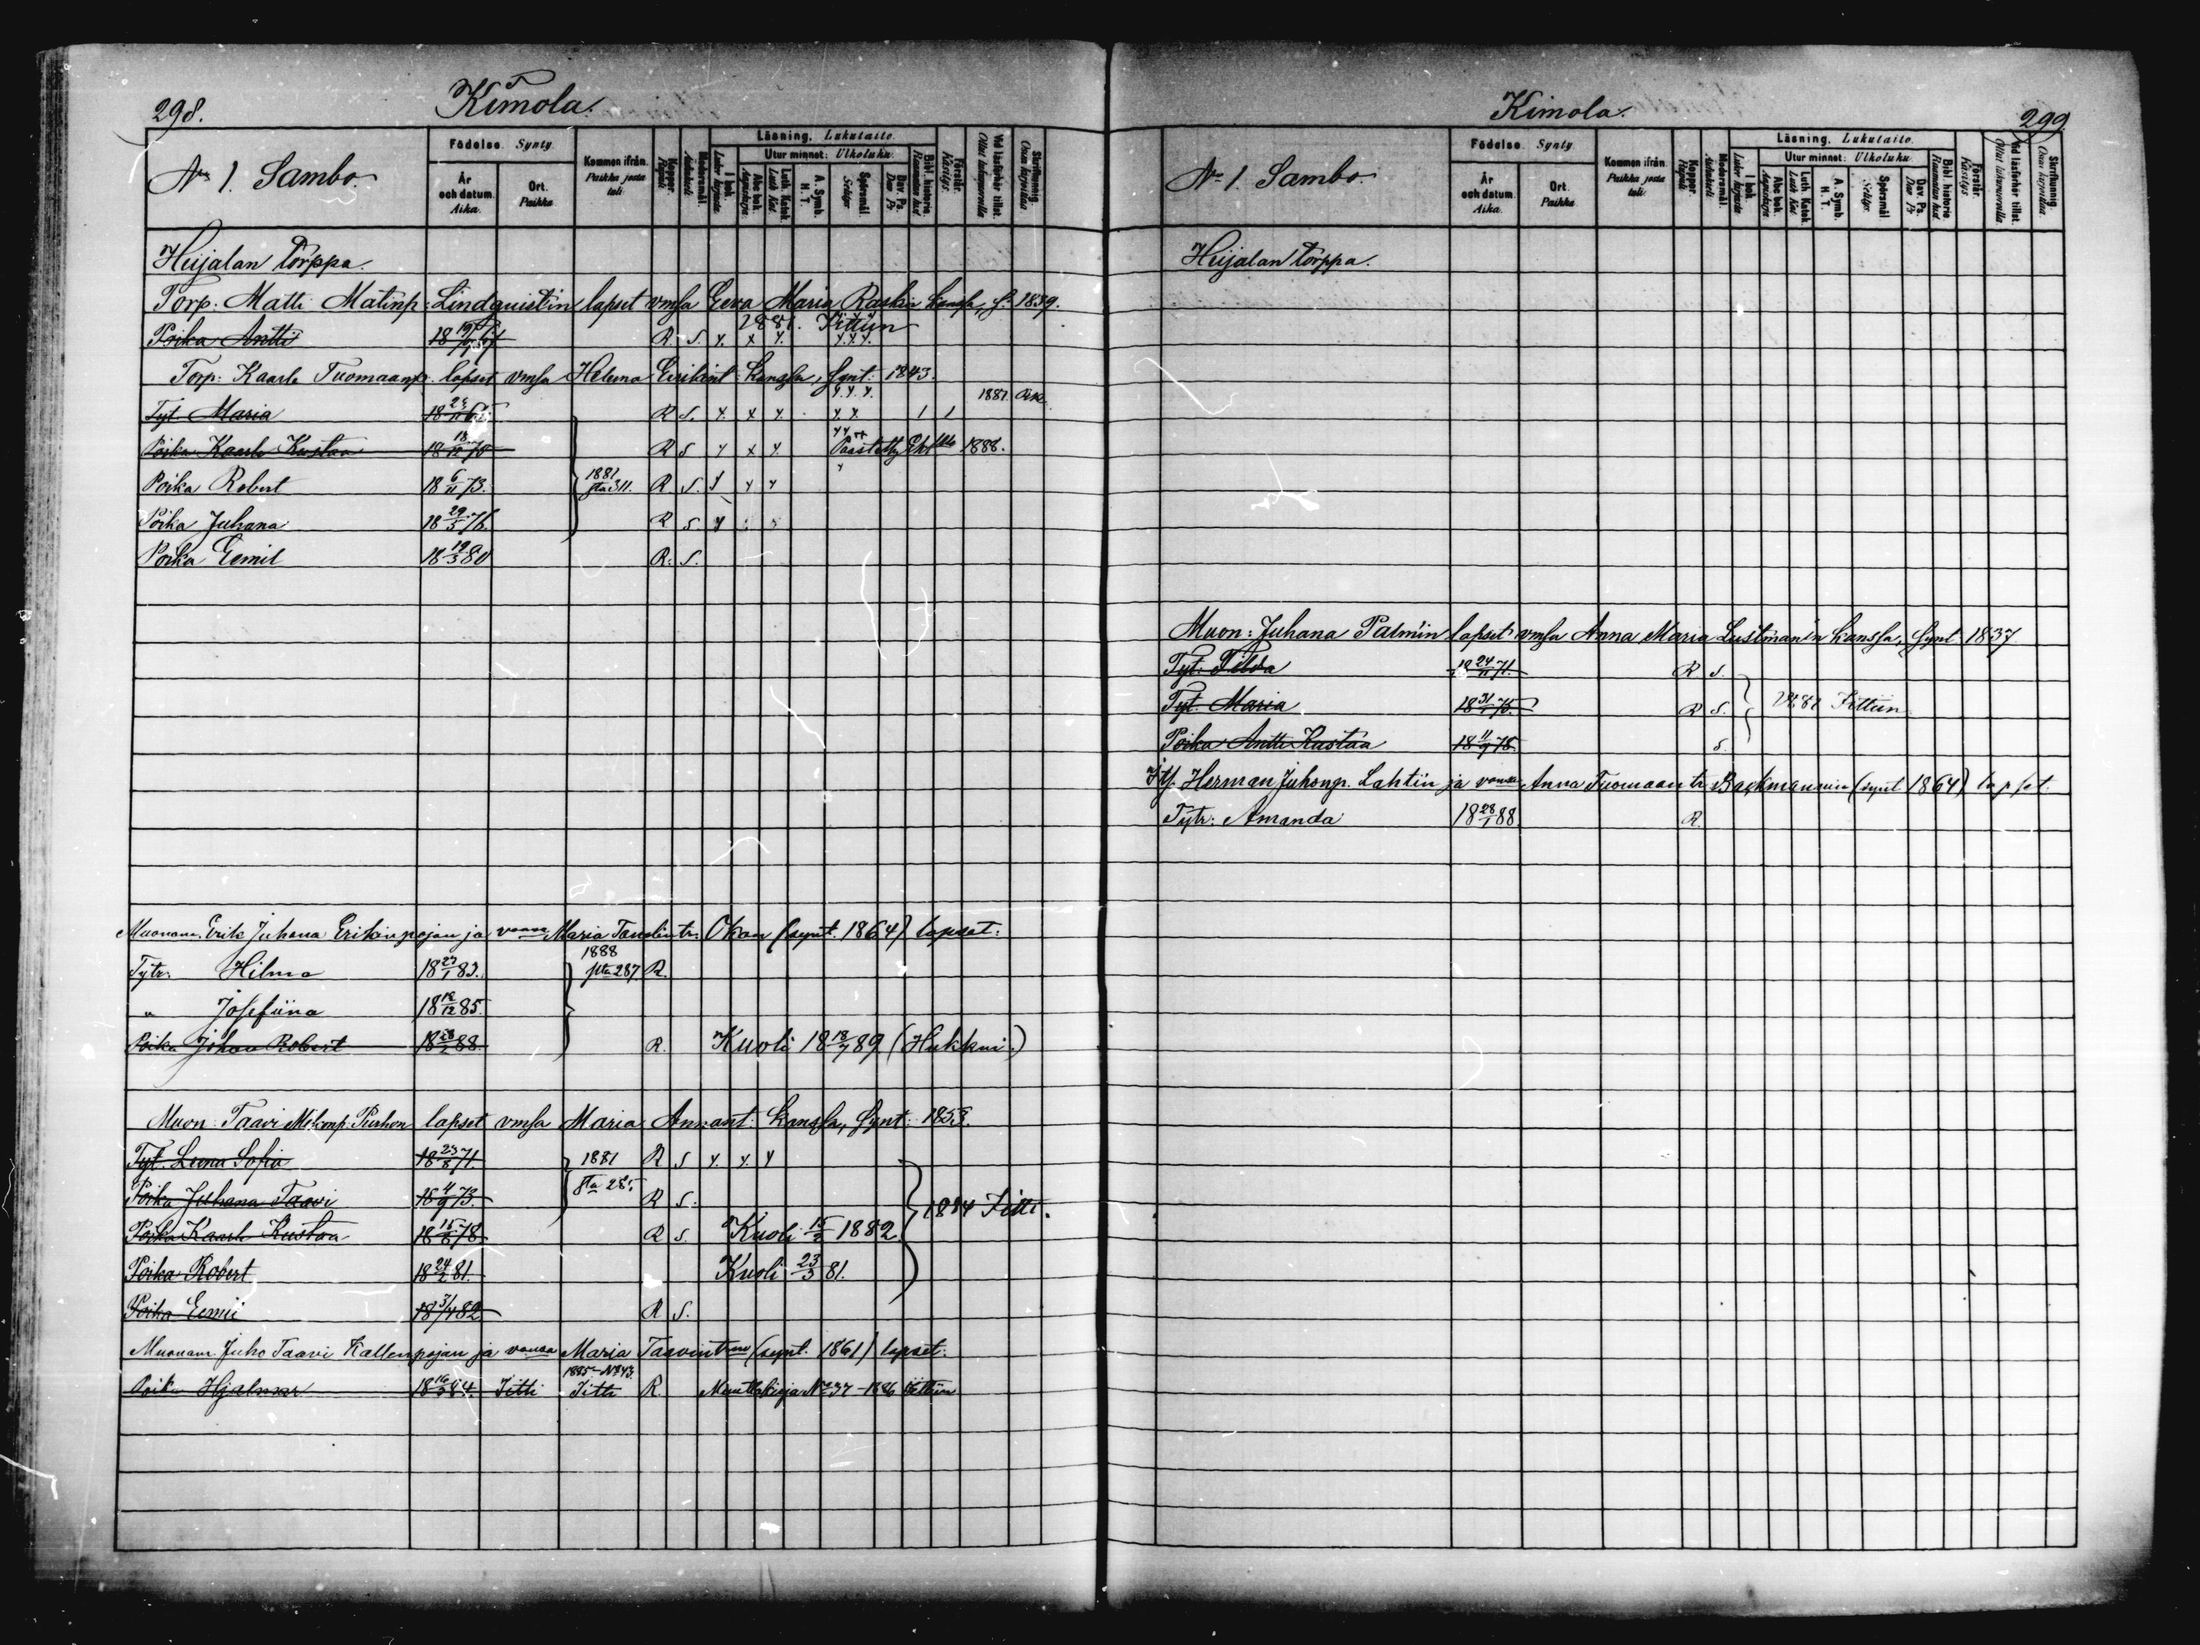 298.
Kimola.
No 1. Sambo.
Födelse. Synty.
År och datum. Aika.
Ort. Paikka
Kommen ifrån. Paikka josta tuli.
Koppor. Rupuli.
Modersmål.
Läsning. Lukutaito.
I bok.
Utur minnet: Ulkoluku.
Abc bok
Luth. Katek. Luth Kat
A. Symb. H. T.
Spörsmål Selitys
Dav. Ps. Dav Ps
Bibl. historia
Förstår. Käsitys.
Vid läsförhör tillst.
Skriftkunnig.
Heijalan torppa.
Torp: Matti Matinp: Lindquistin lapset vmsa Eeva Maria Raskin kanssa, s. 1839.
Poika Antti R. S. y. x y. 1881. Iittiin y.x.y.
Torp: Kaarle Tuomaanp. lapset vmsa Helena Erikint: kanssa, synt: 1843.
Tyt. Maria 18 23/11 65. R S. y. x y. y.y.y. y.y. 1 1 1887
Poika Kaarle Kustaa 18 18/12 70 R S y x y. Päästetty 1888.
Poika Robert 18 6/11 73. 1881 sta 311. R. S. y y y
Poika Juhana 18 29/5 76. R S y
Poika Eemil 18 19/3 80 R. S.
Muonam. Erik Juhana Erikinpojan ja vmsa Maria Taneli tr: Okan (synt. 1864) lapset:
Tytr: Hilma 18 27/1 83. 1888 sta 287. R.
" Josefiina 18 18/12 85.
Poika Johan Robert 18 28/2 88. R. Kuoli 18 18/7 89 (Hukkui.)
Muon: Taavi Melkonp: Purhon lapset vmsa Maria Annant: kanssa, synt: 1853.
Tyt. Leena Sofia 18 23/8 71. 1881 R S y. y. y
Poika Juhana Taavi 18 4/9 73. sta 285. R S. 1884 Iitti.
Poika Kaarle Kustaa 18 16/8 78 R S. Kuoli 15/2 1882.
Poika Robert 18 24/2 81. Kuoli 23/3 81.
Poika Eemil 18 3/4 82 R S.
Muonam. Juho Taavi Kallenpojan ja vmsa Maria Taavint:ren (synt. 1861) lapset.
Poika Hjalmar 18 16/3 84. Iitti 1885 No 43. Iitti R. Muuttokirja No 37 - 1886 Iittiin
299.
Kimola.
No 1. Sambo
Födelse. Synty.
År och datum. Aika.
Ort. Paikka
Kommen ifrån. Paikka josta tuli.
Koppor. Rupuli.
Modersmål.
Läsning. Lukutaito.
I bok.
Utur minnet: Ulkoluku
Abc bok.
Luth. Katek. Luth Kat
A. Symb. H. T.
Spörsmål Selitys
Dav. Ps. Dav Ps
Bibl. historia
Förstår. Käsitys
Vid läsförhör tillst.
Skriftkunnig.
Heijalan torppa.
Muon: Juhana Palmin lapset vmsa Anna Maria Lustmanin kanssa, synt 1837.
Tyt. Tilda 18 24/11 71. R S.
Tyt. Maria 18 31/1 75. R S. Iittiin
Poika Antti Kustaa 18 11/9 78. S.
Itf. Herman Juhonp. Lahtin ja vmsa Anna Tuomaan tr. Backmannin (synt 1864) lapset.
Tytr: Amanda 18 28/1 88. R.